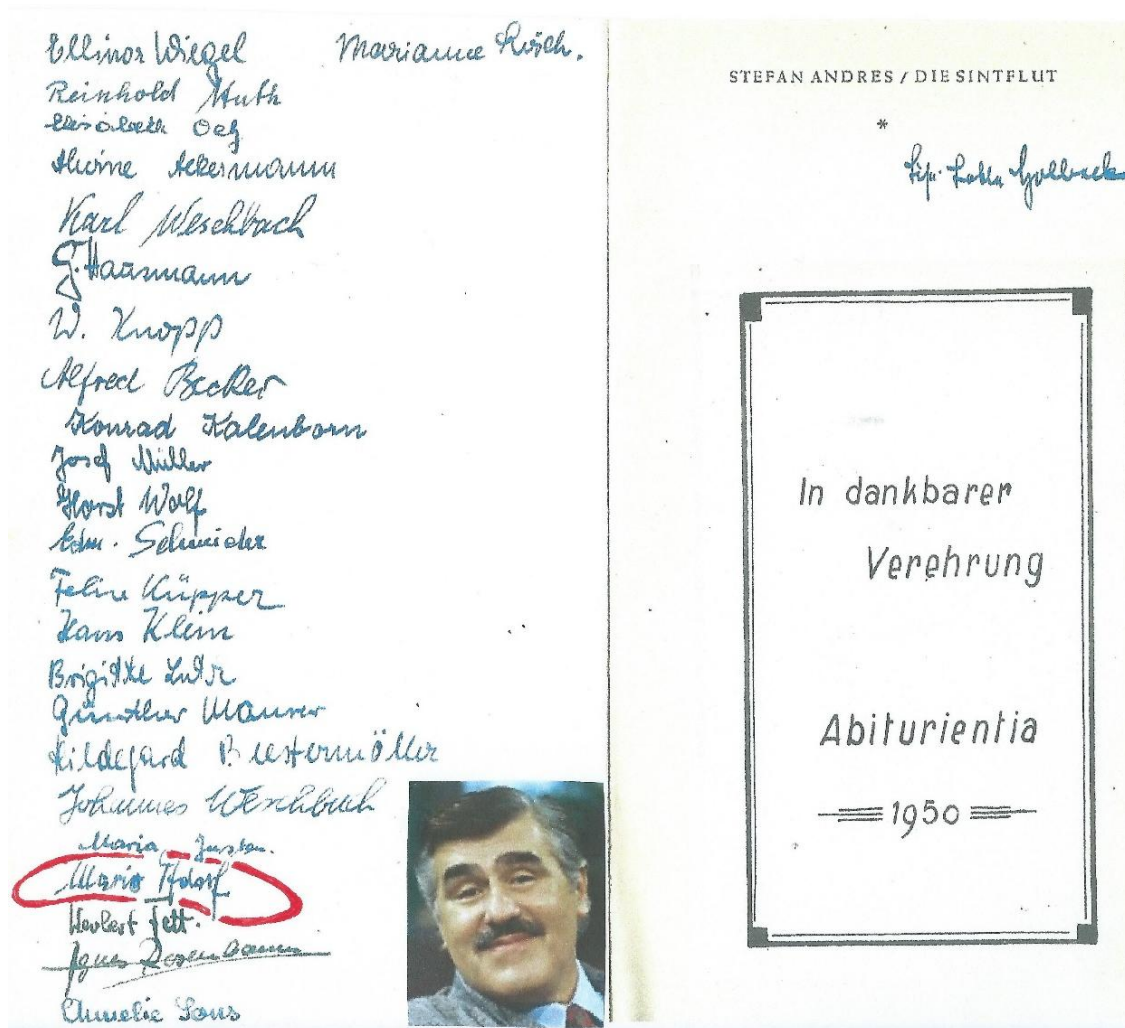 Ellinor Wiegel Marianne
Reinhold Muth
Elisabeth
Alwine Ackermann
Karl Weschbach
G. Hausmann
W. Knopp
Alfred Becker
Konrad Kalenborn
Josef Müller
Horst Wolf
Edm. Schneider
Feline Küpper
Hans Klein
Brigitte
Günther Maurer
Hildegard Biestermöller
Johannes Weschbach
Maria
Mario Adorf
Herbert Fett.
Agnes Rosenbaum
Annelie Sons
STEFAN ANDRES / DIE SINTFLUT
*
In dankbarer
Verehrung
Abiturientia
1950